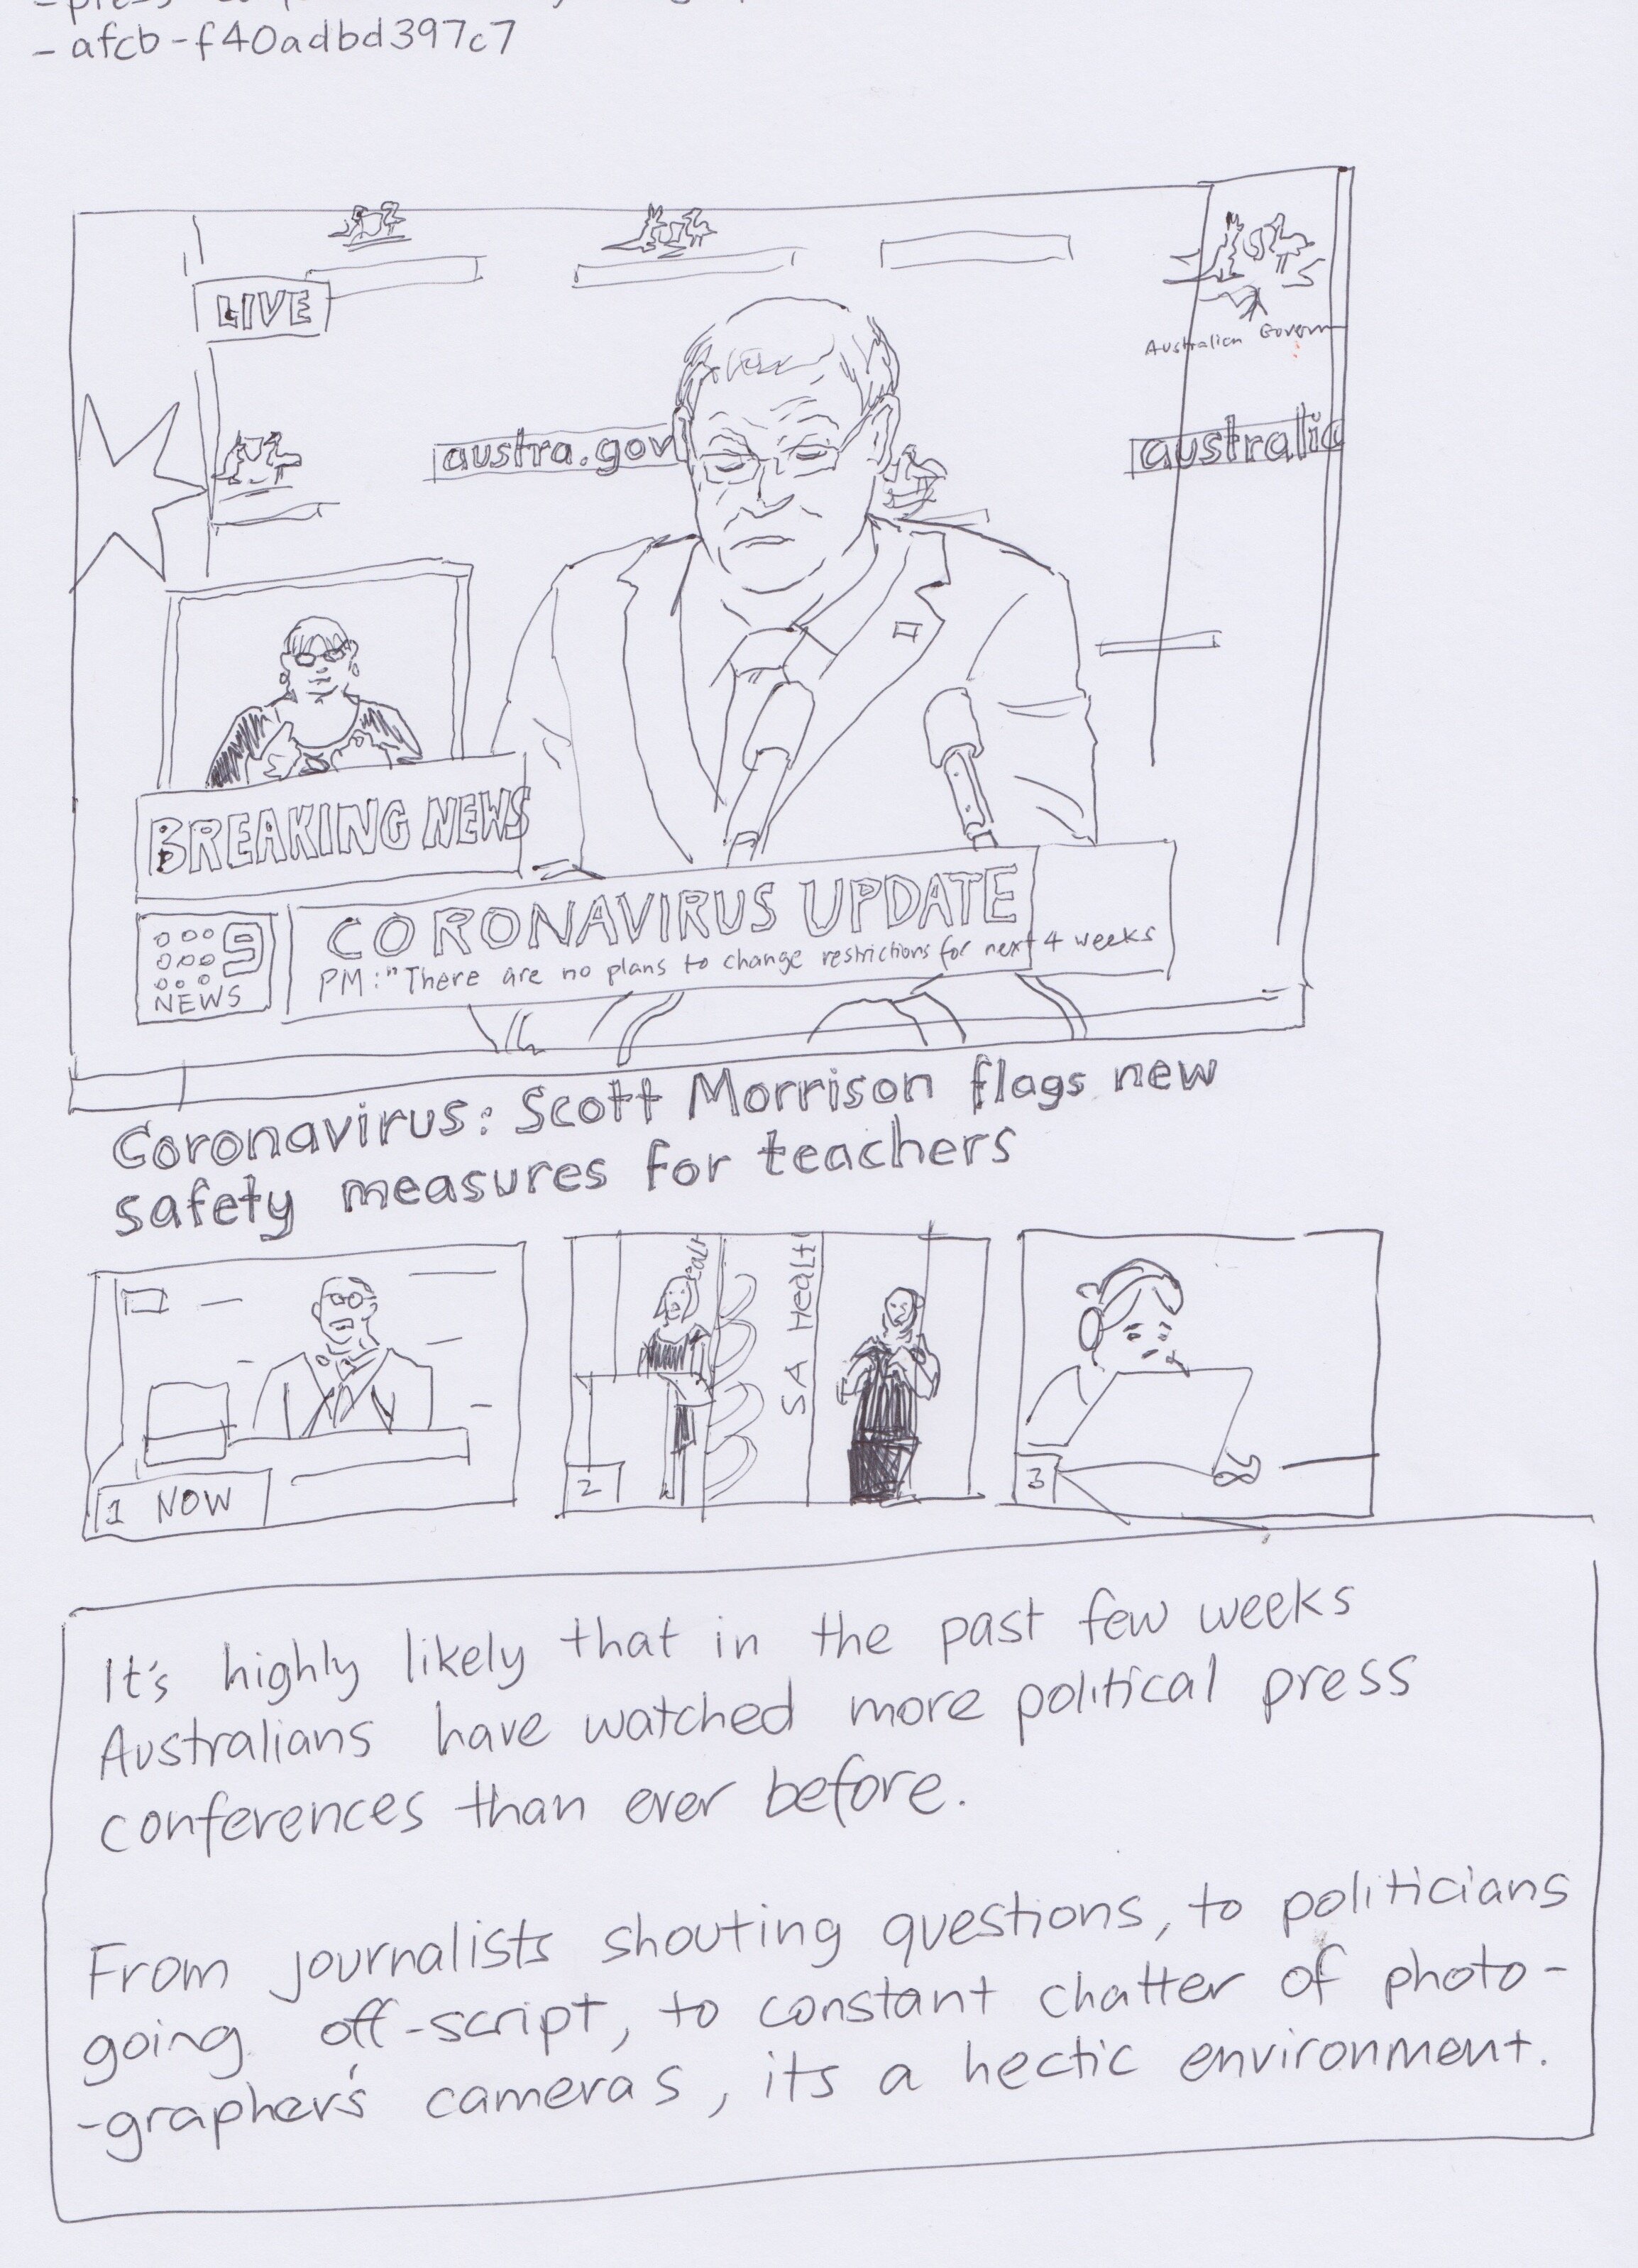 - afcb-f40adbd397c7
LIVE
Australian Governm
austra.gov
australia
BREAKING NEWS
9
NEWS
CORONAVIRUS UPDATE
PM: "There are no plans to change restrictions for next 4 weeks
Coronavirus: Scott Morrison flags new
safety measures for teachers
1 NOW
2
ealth
SA Health
3
It's highly likely that in the past few weeks
Australians have watched more political press
conferences than ever before.
From journalists shouting questions, to politicians
going off-script, to constant chatter of photo-
-grapher's cameras, its a hectic environment.